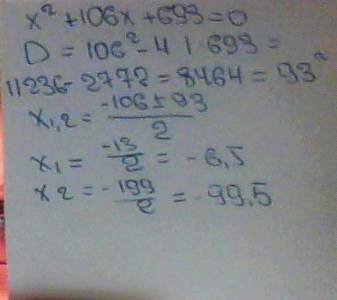 x² + 106x + 693 = 0
D = 106² - 4 1 693 =
11236 - 2772 = 8464 = 93²
x₁,₂ = -106 ± 93 / 2
x₁ = -13/2 = -6,5
x2 = -199/2 = -99.5